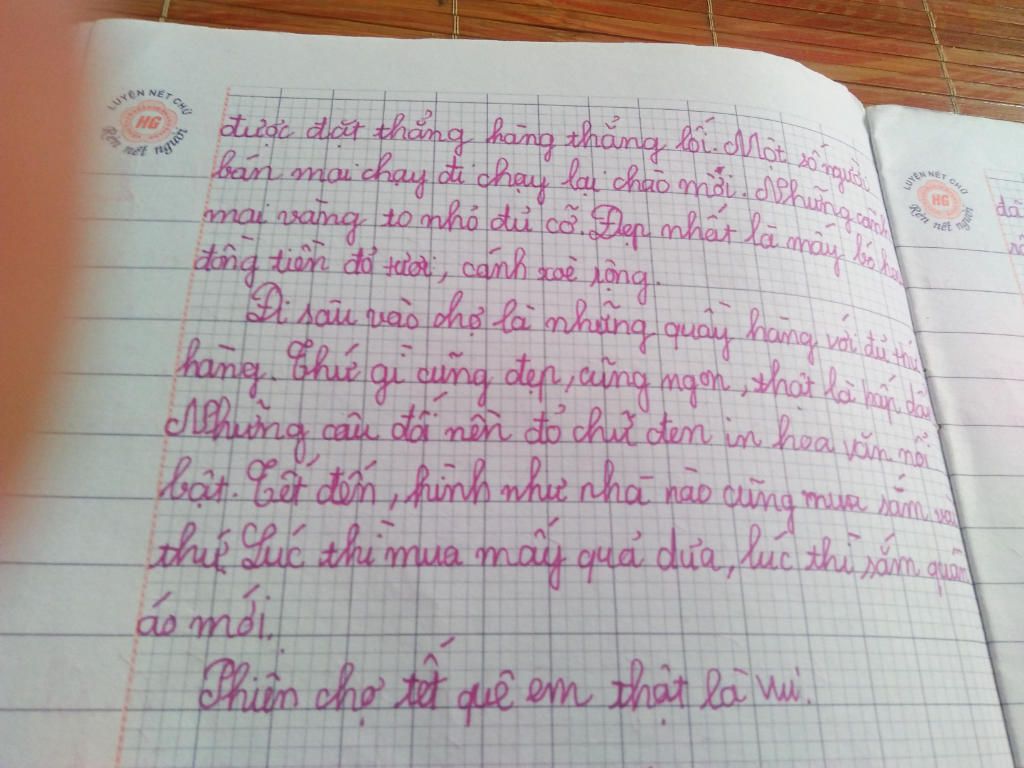 LUYỆN NÉT CHỮ
HG
Rèn nết người
được đặt thẳng hàng thẳng lối. Một số người
bán mai chạy đi chạy lại chào mời. Những cành
mai vàng to nhỏ đủ cỡ. Đẹp nhất là mấy bó hoa
đồng tiền đỏ tươi, cánh xoè rộng.
Đi sâu vào chợ là những quầy hàng với đủ thứ
hàng. Thứ gì cũng đẹp, cũng ngon, thật là hấp dẫn
Những câu đối nền đỏ chữ đen in hoa văn nổi
bật. Tết đến, hình như nhà nào cũng mua sắm vài
thứ. Lúc thì mua mấy quả dưa, lúc thì sắm quần
áo mới.
Phiên chợ tết quê em thật là vui.
LUYỆN NÉT CHỮ
HG
Rèn nết người